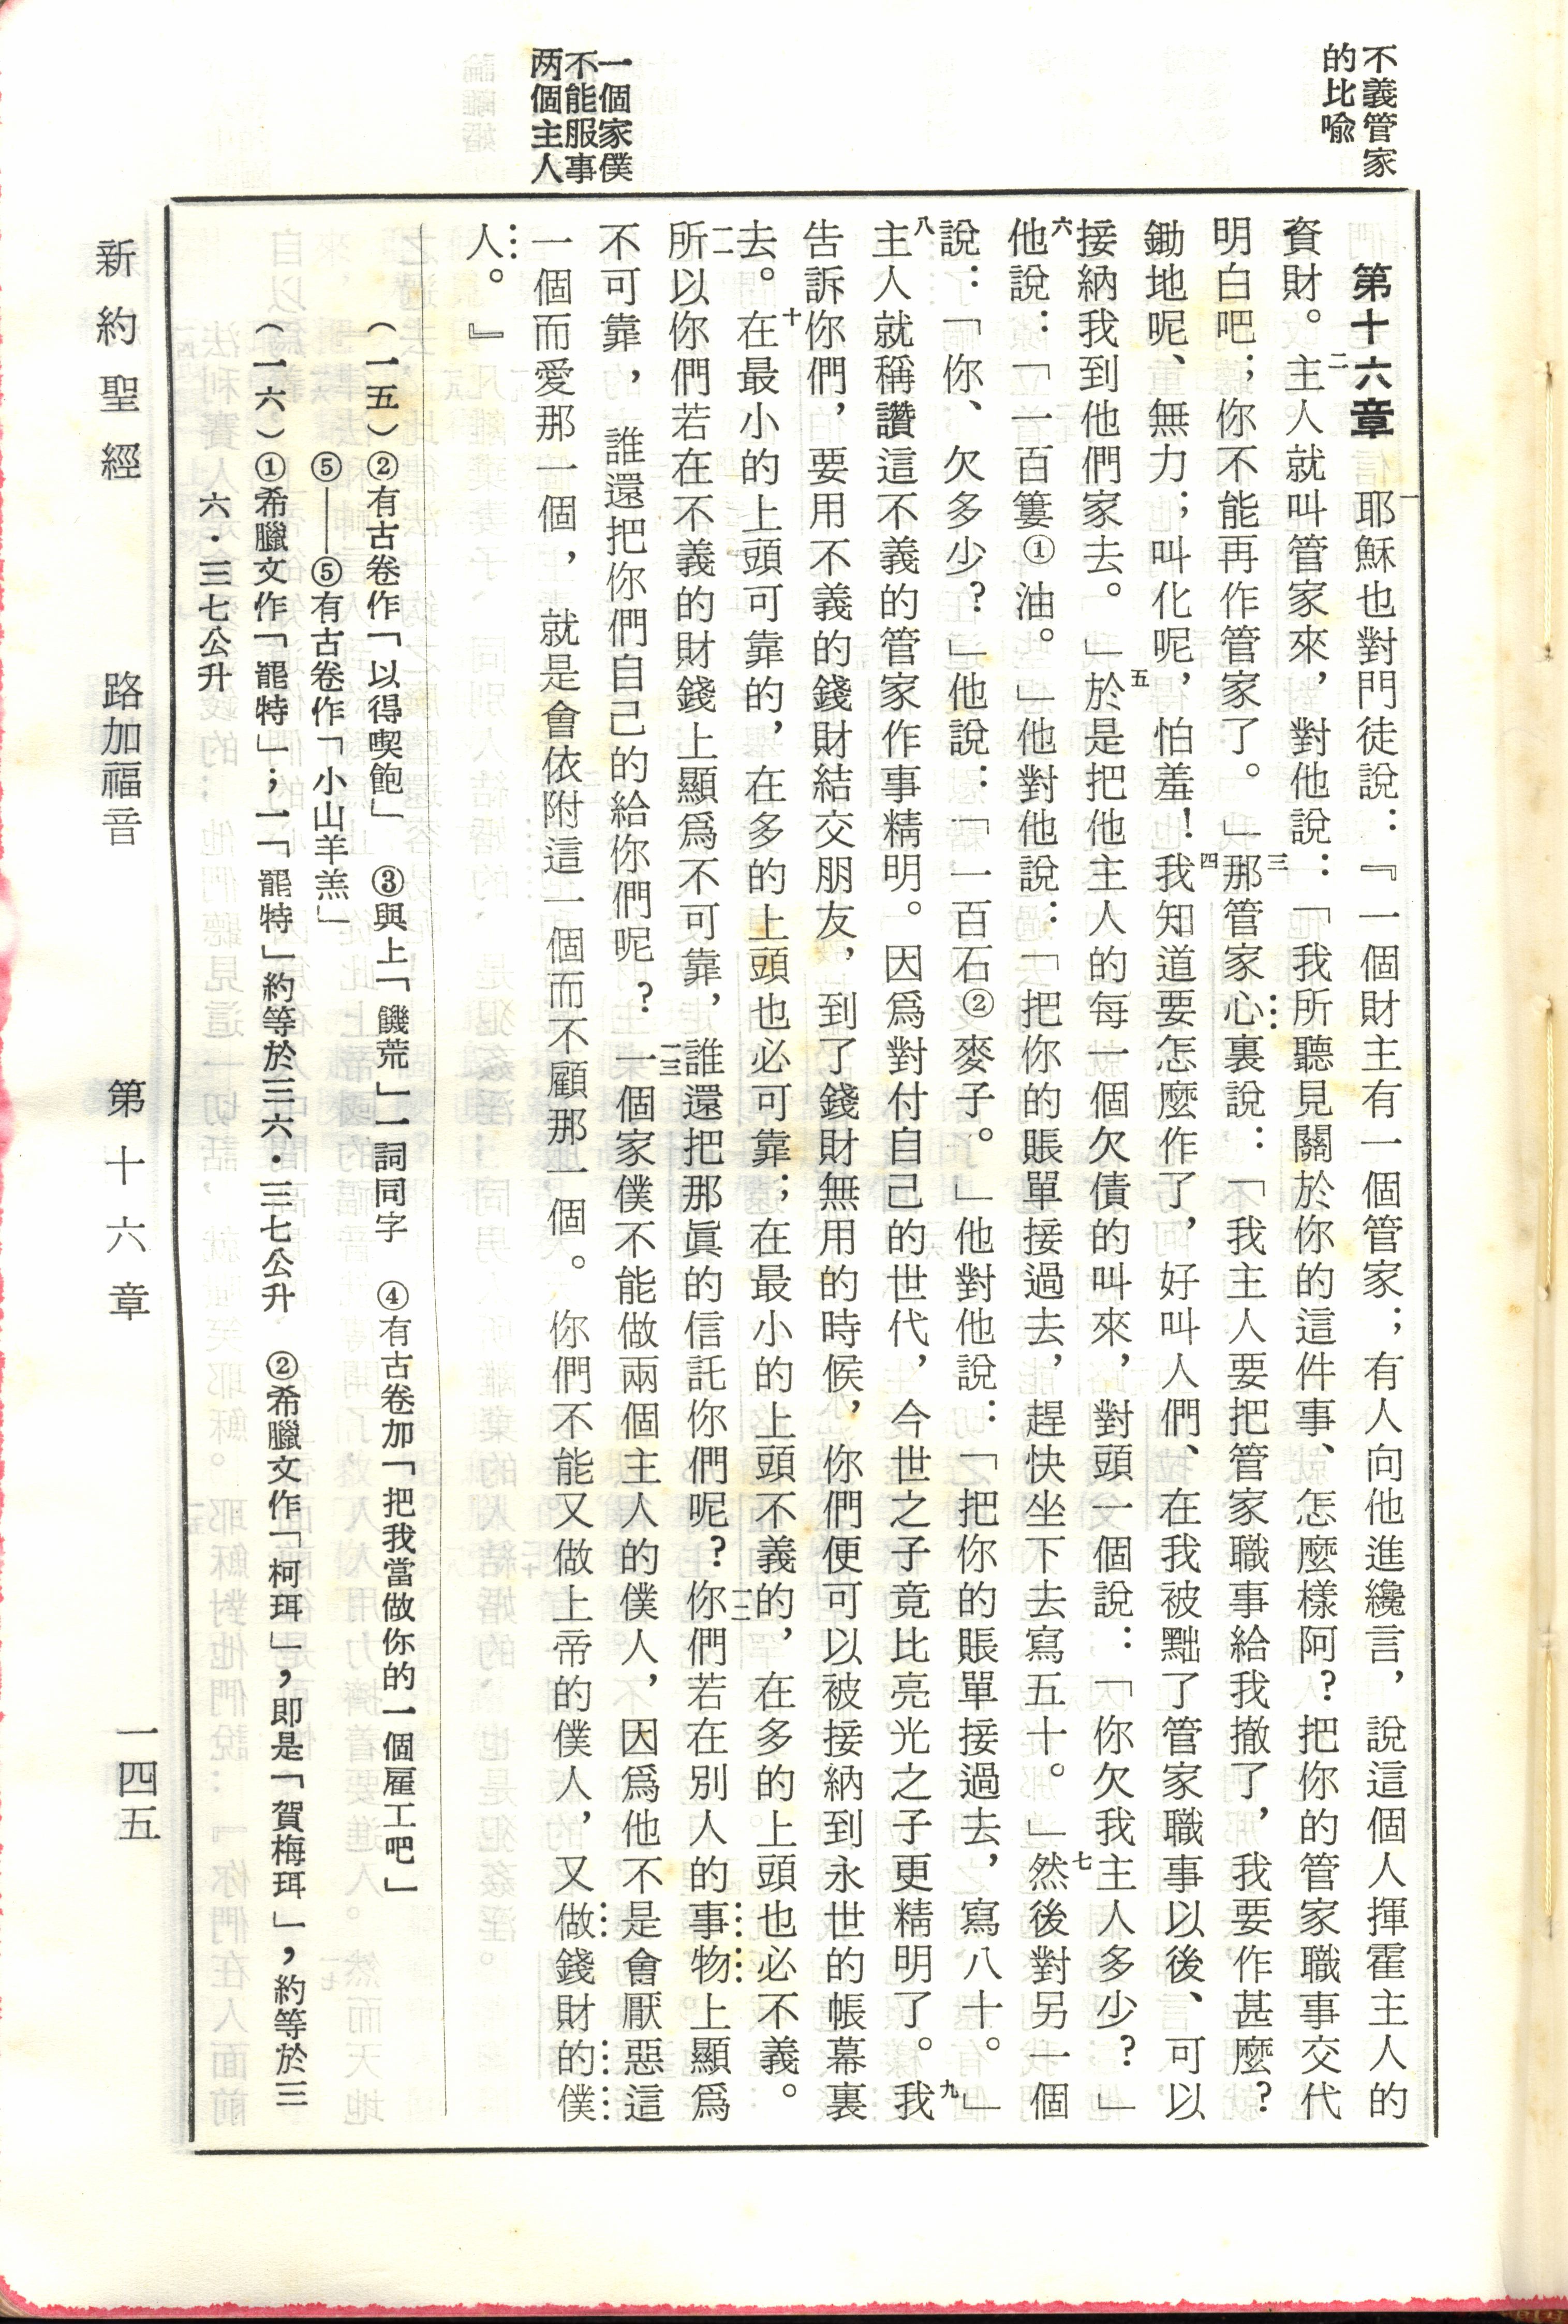 不義管家
的比喩
一個家僕
不能服事
两個主人
第十六章　一耶穌也對門徒說：『一個財主有一個管家；有人向他進纔言，說這個人揮霍主人的
資財。二主人就叫管家來，對他說：「我所聽見關於你的這件事、怎麼樣阿？把你的管家職事交代
明白吧；你不能再作管家了。」三那管家心裏說：「我主人要把管家職事給我撤了，我要作甚麼？
鋤地呢、無力；叫化呢，怕羞！四我知道要怎麼作了，好叫人們、在我被黜了管家職事以後、可以
接納我到他們家去。」五於是把他主人的每一個欠債的叫來，對頭一個說：「你欠我主人多少？」
六他說：「一百簍①油。」他對他說：「把你的賬單接過去，趕快坐下去寫五十。」七然後對另一個
說：「你、欠多少？」他說：「一百石②麥子。」他對他說：「把你的賬單接過去，寫八十。」
八主人就稱讚這不義的管家作事精明。因爲對付自己的世代，今世之子竟比亮光之子更精明了。九我
告訴你們，要用不義的錢財結交朋友，到了錢財無用的時候，你們便可以被接納到永世的帳幕裏
去。十在最小的上頭可靠的，在多的上頭也必可靠；在最小的上頭不義的，在多的上頭也必不義。
一一所以你們若在不義的財錢上顯爲不可靠，誰還把那眞的信託你們呢？一二你們若在別人的事物上顯爲
不可靠，誰還把你們自己的給你們呢？一三一個家僕不能做兩個主人的僕人，因爲他不是會厭惡這
一個而愛那一個，就是會依附這一個而不顧那一個。你們不能又做上帝的僕人，又做錢財的僕
人。』
（一五）②有古卷作「以得喫飽」　③與上「饑荒」一詞同字　④有古卷加「把我當做你的一個雇工吧」
⑤——⑤有古卷作「小山羊羔」
（一六）①希臘文作「罷特」；一「罷特」約等於三六．三七公升　②希臘文作「柯珥」，即是「賀梅珥」，約等於三
六．三七公升
新約聖經　路加福音　第十六章　一四五